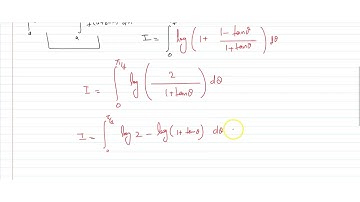 I = ∫₀^{π/4} log(1 + (1 - tanθ)/(1 + tanθ)) dθ
I = ∫₀^{π/4} log(2/(1 + tanθ)) dθ
I = ∫₀^{π/4} log 2 - log(1 + tanθ) dθ